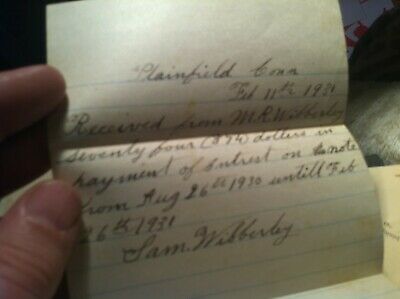 Plainfield Conn
Feb 11th 1931
Received from M.R. Wibberley
seventy four ($74) dollars in
payment of Entrest on note
from Aug 26th 1930 untill Feb
26th 1931
Sam. Wibberley